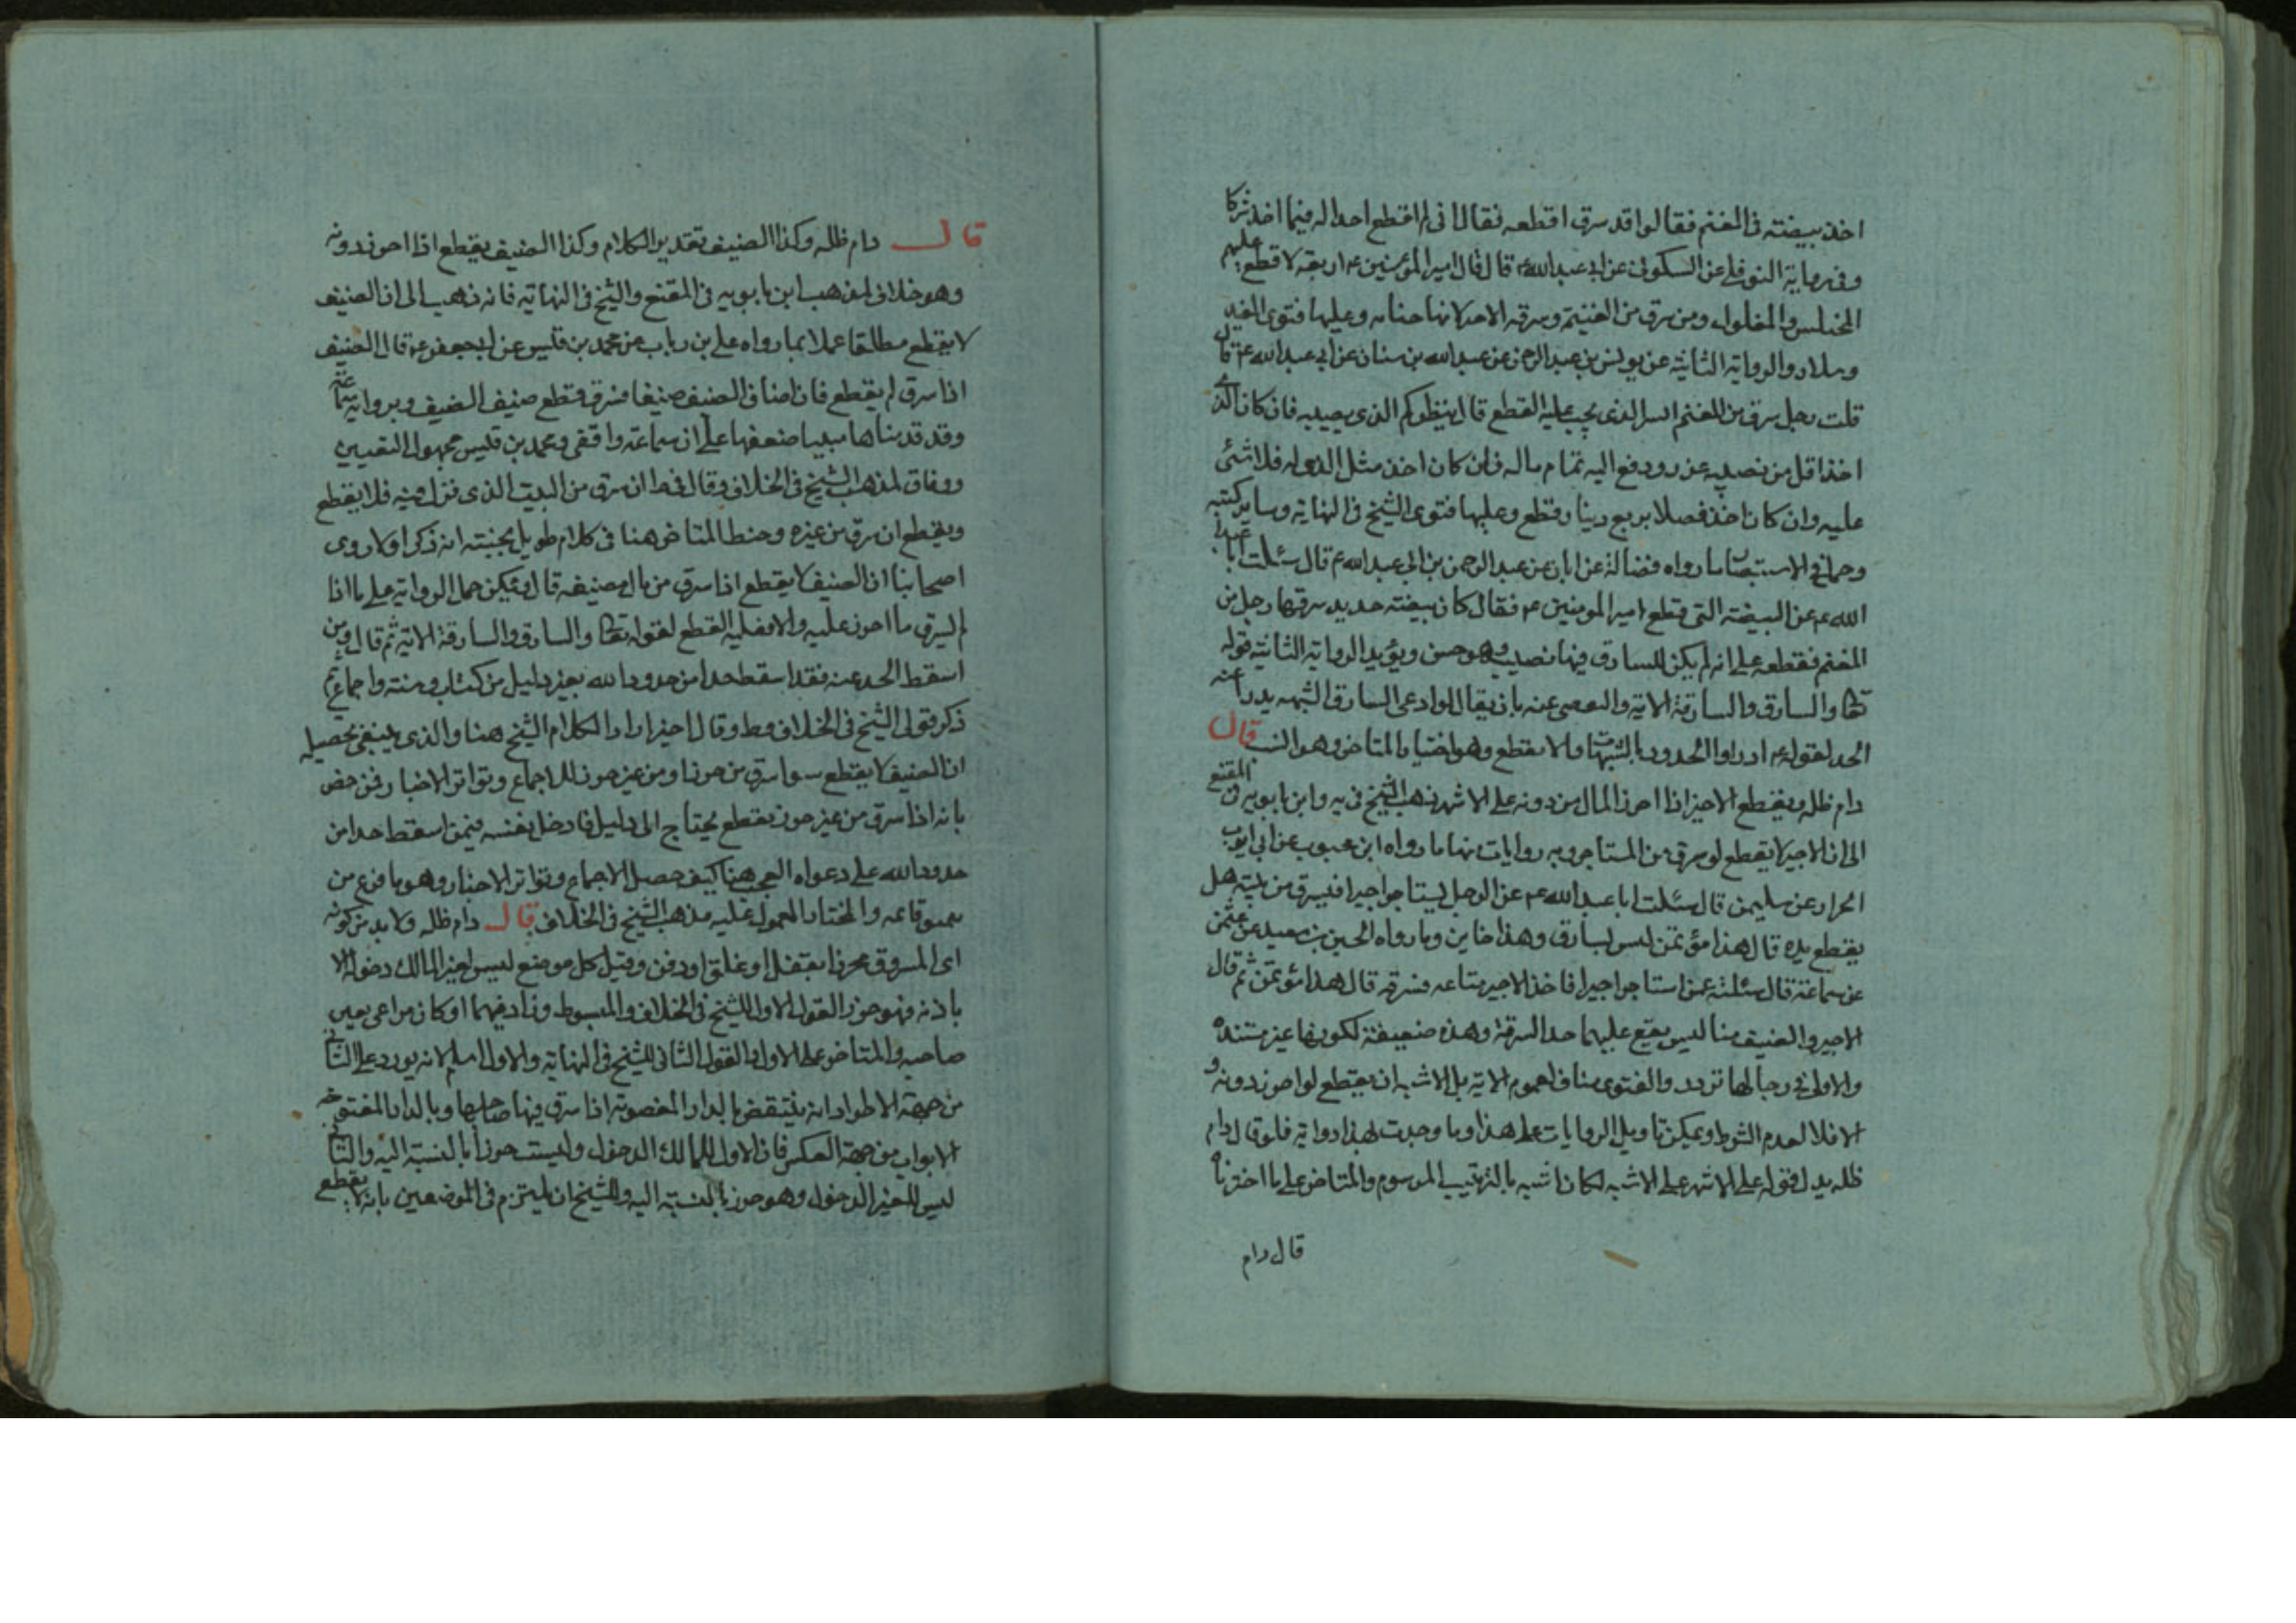 اخذ بيضة في المغنم فقالوا قد سرق اقطعه فقال اني لم اقطع احدا له فيما اخذ شركا
وفي رواية النوفلي عن السكوني عن ابي عبد الله ع قال قال امير المؤمنين ع اربعة لا قطع عليهم
المختلس والمغلول ومن سرق من الغنيمة وسرقة الاجير لانها خيانة وعليها فتوى المفيد
وسلار والرواية الثانية عن يونس بن عبد الرحمن عن عبد الله بن سنان عن ابي عبد الله ع قال
قلت رجل سرق من المغنم ايس الذي يجب عليه القطع قال ينظر كم الذي يصيبه فان كان الذي
اخذ اقل من نصيبه عزر ودفع اليه تمام ماله فان كان اخذ مثل الذي له فلا شئ
عليه وان كان اخذ فضلا بربع دينار قطع وعليها فتوى الشيخ في النهاية وساير كتبه
وحمل في الاستبصار ما رواه فضالة عن ابان عن عبد الرحمن بن ابي عبد الله ع قال سئلت ابا عبد
الله ع عن البيضة التي قطع امير المومنين ع فقال كان بيضة حديد سرقها رجل من
المغنم فقطعه على انه لم يكن للسارق فيها نصيب وهو حسن ويؤيد الرواية الثانية قوله
تعالى والسارق والسارقة الاية والتفصى عنه بان يقال لو ادعى السارق الشبهه يدرأ عنه
الحد لقوله ع ادراوا الحدود بالشبهات والا يقطع وهو اختيار المتاخر وهو انسب قال
دام ظله ويقطع الاجير اذا احرز المال من دونه على الاشهر ذهب الشيخ في يه وابن بابويه في المقنع
الى ان الاجير لا يقطع لو سرق من المستاجر وبه روايات منها ما رواه ابن محبوب عن ابي ايوب
الخزاز عن سليمن قال سئلت ابا عبد الله ع عن الرجل يستاجر اجيرا فيسرق من بيته هل
يقطع يده قال هذا مؤتمن ليس بسارق وهذا خاين وما رواه الحسين بن سعيد عن عثمن
عن سماعة قال سئلته عمن استاجر اجيرا فاخذ الاجير متاعه فسرقه قال هذا مؤتمن ثم قال
الاجير والضيف امنا ليس يقع عليهما حد السرقة وهذه ضعيفة لكونها غير مستندة
والاولى في رجالها تردد والفتوى مناف لعموم الاية بل الاشبه ان يقطع لو احرز دونه و
الا فلا لعدم الشرط ويمكن تاويل الروايات على هذا وما وجدت لهذا رواية فلو قال دام
ظله بدل قوله على الاشهر على الاشبه لكان اشبه بالترتيب المرسوم والمتاخر على ما اخترناه
قال دام
قال دام ظله وكذا الضيف تقدير الكلام وكذا الضيف يقطع اذا احرز دونه
وهو خلاف لمذهب ابن بابويه في المقنع والشيخ في النهاية فانه ذهب الى ان الضيف
لا يقطع مطلقا عملا بما رواه علي بن رباب عن محمد بن قيس عن ابي جعفر ع قال الضيف
اذا سرق لم يقطع فان اضاف الضيف ضيفا فسرق قطع ضيف الضيف وبرواية سماعة
وقد قدمناها مبينا ضعفها على ان سماعة واقفي ومحمد بن قيس مجهول التعيين
ووفاق لمذهب الشيخ في الخلاف وقال في ط ان سرق من البيت الذي نزل فيه فلا يقطع
ويقطع ان سرق من غيره وخبط المتاخر هنا في كلام طويل انه ذكر اولا روى
اصحابنا ان الضيف لا يقطع اذا سرق من مال مضيفه قال يمكن حمل الرواية على ما اذا
لم يسرق ما احرز عليه والا فعليه القطع لقوله تعالى والسارق والسارقة الاية ثم قال ومن
اسقط الحد عنه فقد اسقط حدا من حدود الله بغير دليل من كتاب وسنة واجماع ثم
ذكر قولي الشيخ في الخلاف وط وقال اخيرا رادا لكلام الشيخ هنا والذي ينبغي تحصيله
ان الضيف لا يقطع سوا سرق من حرز او من غير حرز للاجماع وتواتر الاخبار فمن خص
بانه اذا سرق من غير حرز يقطع يحتاج الى دليل فادخل نفسه فيمن اسقط حدا من
حدود الله على دعواه العجب هنا كيف حصل الاجماع وتواتر الاخبار وهو ما فرغ من
والمختار المعمول عليه مذهب الشيخ في الخلاف قال دام ظله ولا بد من كونه
اى المسروق محرزا بقفل او غلق او دفن وقيل كل موضع ليس لغير المالك دخوله الا
باذنه فهو حرز القول الاول للشيخ في الخلاف والمبسوط وزاد فيهما او كان مراعى بعين
صاحبه والمتاخر على الاول والقول الثاني للشيخ في النهاية والاول اسلم لانه يورد على الثاني
من جهة الاطراد انه ينتقض بالدار المغصوبة اذا سرق فيها صاحبها وبالدار المفتوحة
الابواب من جهة العكس فان الاول للمالك الدخول وليست حرزا بالنسبة اليه والثاني
ليس للغير الدخول وهو حرز بالنسبة اليه وللشيخ ان يلتزم في الموضعين بانه لا يقطع